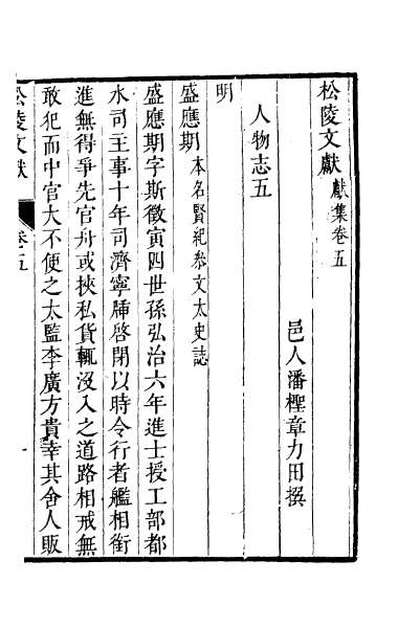 松陵文獻獻集卷五
邑人潘檉章力田撰
人物志五
明
盛應期本名賢紀叅文太史誌
盛應期字斯徵寅四世孫弘治六年進士授工部都
水司主事十年司濟寧牐啓閉以時令行者艫相銜
進無得爭先官舟或挾私貨輒沒入之道路相戒無
敢犯而中官大不便之太監李廣方貴幸其舍人販
松陵文獻 卷五 一